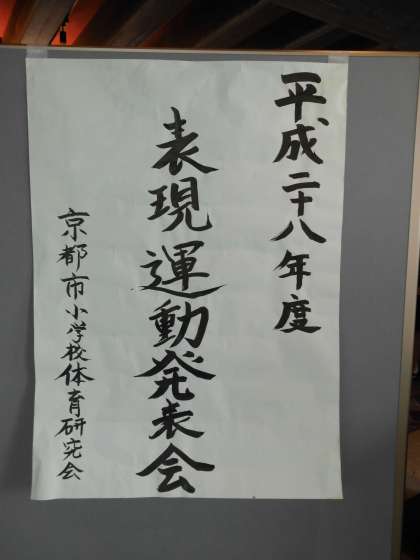 平成二十八年度
表現運動発表会
京都市小学校体育研究会